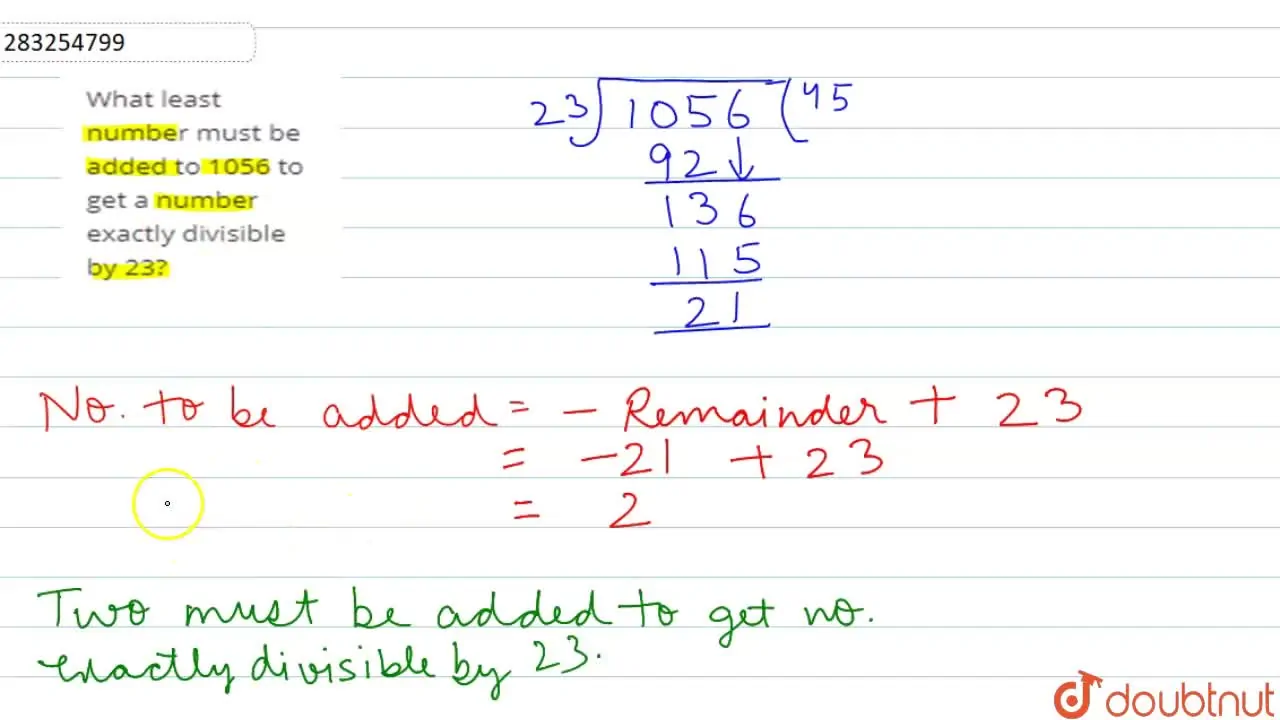 283254799
What least
number must be
added to 1056 to
get a number
exactly divisible
by 23?
23)1056(45
92↓
136
115
21
No. to be added = - Remainder + 23
= -21 + 23
= 2
Two must be added to get no.
exactly divisible by 23.
doubtnut